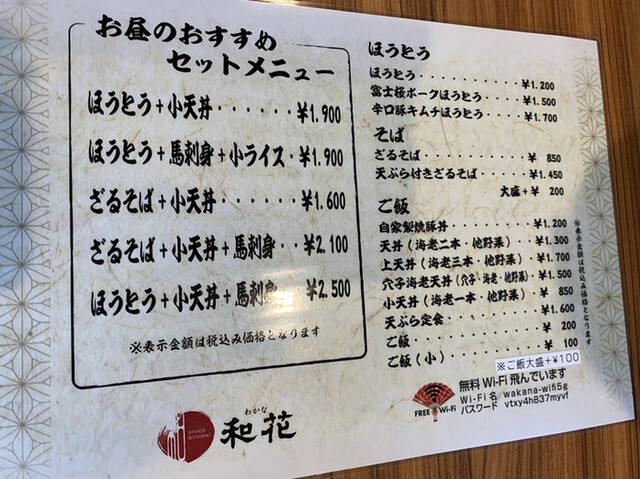 お昼のおすすめ
セットメニュー
ほうとう+小天丼・・・・・・¥1.900
ほうとう+馬刺身+小ライス・¥1.900
ざるそば+小天丼・・・・・¥1.600
ざるそば+小天丼+馬刺身・・¥2.100
ほうとう+小天丼+馬刺身・・¥2.500
※表示金額は税込み価格となります
ほうとう
ほうとう・・・・・・・・・・¥1.200
富士桜ポークほうとう・・・・¥1.500
辛口豚キムチほうとう・・・・¥1.700
そば
ざるそば・・・・・・・・・・¥ 850
天ぷら付きざるそば・・・・・¥1.450
大盛+¥ 200
ご飯
自家製焼豚丼・・・・・・・・¥1.200
天丼(海老二本・他野菜)・・・¥1.300
上天丼(海老三本・他野菜)・・¥1.700
穴子海老天丼(穴子・海老・他野菜)・¥1.500
小天丼(海老一本・他野菜)・・¥ 850
天ぷら定食・・・・・・・・・¥1.600
ご飯・・・・・・・・・・・・¥ 200
ご飯(小)・・・・・・・・・・¥ 100
※ご飯大盛+¥100
※表示金額は税込み価格となります
無料Wi-Fi飛んでいます
Wi-Fi名 wakana-wifi5g
パスワード vtxy4h837myvf
FREE Wi-Fi
JAPANESE
RESTAURANT
わかな
和花